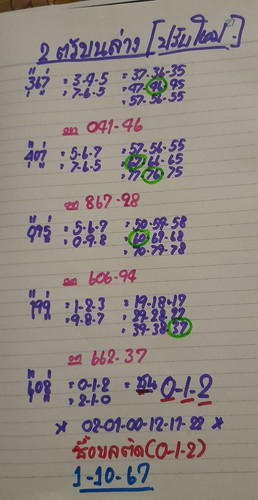 2 ตัวบนล่าง [ปรับใหม่]
= 3-4-5 = 37-36-35
= 7-6-5 = 47-46-45
= 57-56-55
ออก 041-46
= 5-6-7 = 57-56-55
= 7-6-5 = 67-66-65
= 77-76-75
ออก 867-28
= 5-6-7 = 50-59-58
= 0-9-8 = 60-69-68
= 70-79-78
ออก 606-94
= 1-2-3 = 19-18-17
= 9-8-7 = 29-28-27
= 39-38-37
ออก 662-37
= 0-1-2 = ชน 0-1-2
= 2-1-0
* 02-01-00-12-11-22 *
(0-1-2)
1-10-67